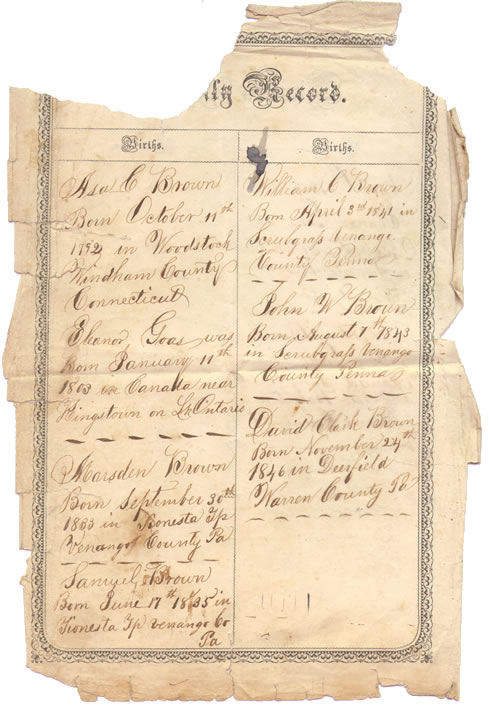 ily Record.
Births.
Asa C Brown
Born October 11th
1792 in Woodstock
Windham County
Connecticut
Eleanor Goas was
Born January 11th
1803 in Canada near
Kingstown on Lk Ontario
Marsden Brown
Born September 30th
1833 in Tionesta Tp
Venango County Pa
Samuel Brown
Born June 17th 1835 in
Tionesta Tp venango Co
Pa
Births.
William C Brown
Born April 3d 1841 in
Scrubgrass venango
County Penna
John W Brown
Born August 7th 1843
in Scrubgrass venango
County Penna
David Clark Brown
Born November 24th
1846 in Deerfield
Warren County Pa